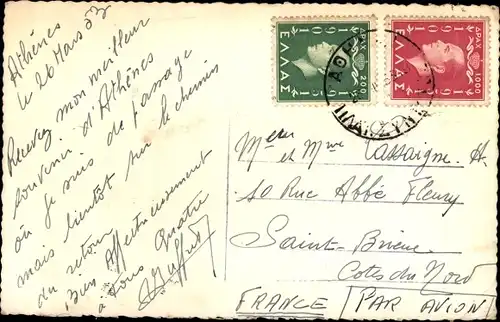 Athènes
le 26 Mars 53
Recevez mon meilleur
souvenir d'Athènes
où je suis de passage
mais bientôt sur le chemin
du retour
Bien Affectueusement
à tous quatre
ΕΛΛΑΣ
ΔΡΑΧ 200
1915 1916
ΕΛΛΑΣ
ΔΡΑΧ 1000
1915 1916
et Mme Lassaigne A.
10 Rue Abbé Fleury
Saint-Brieuc
Cotes du Nord
FRANCE (PAR AVION)